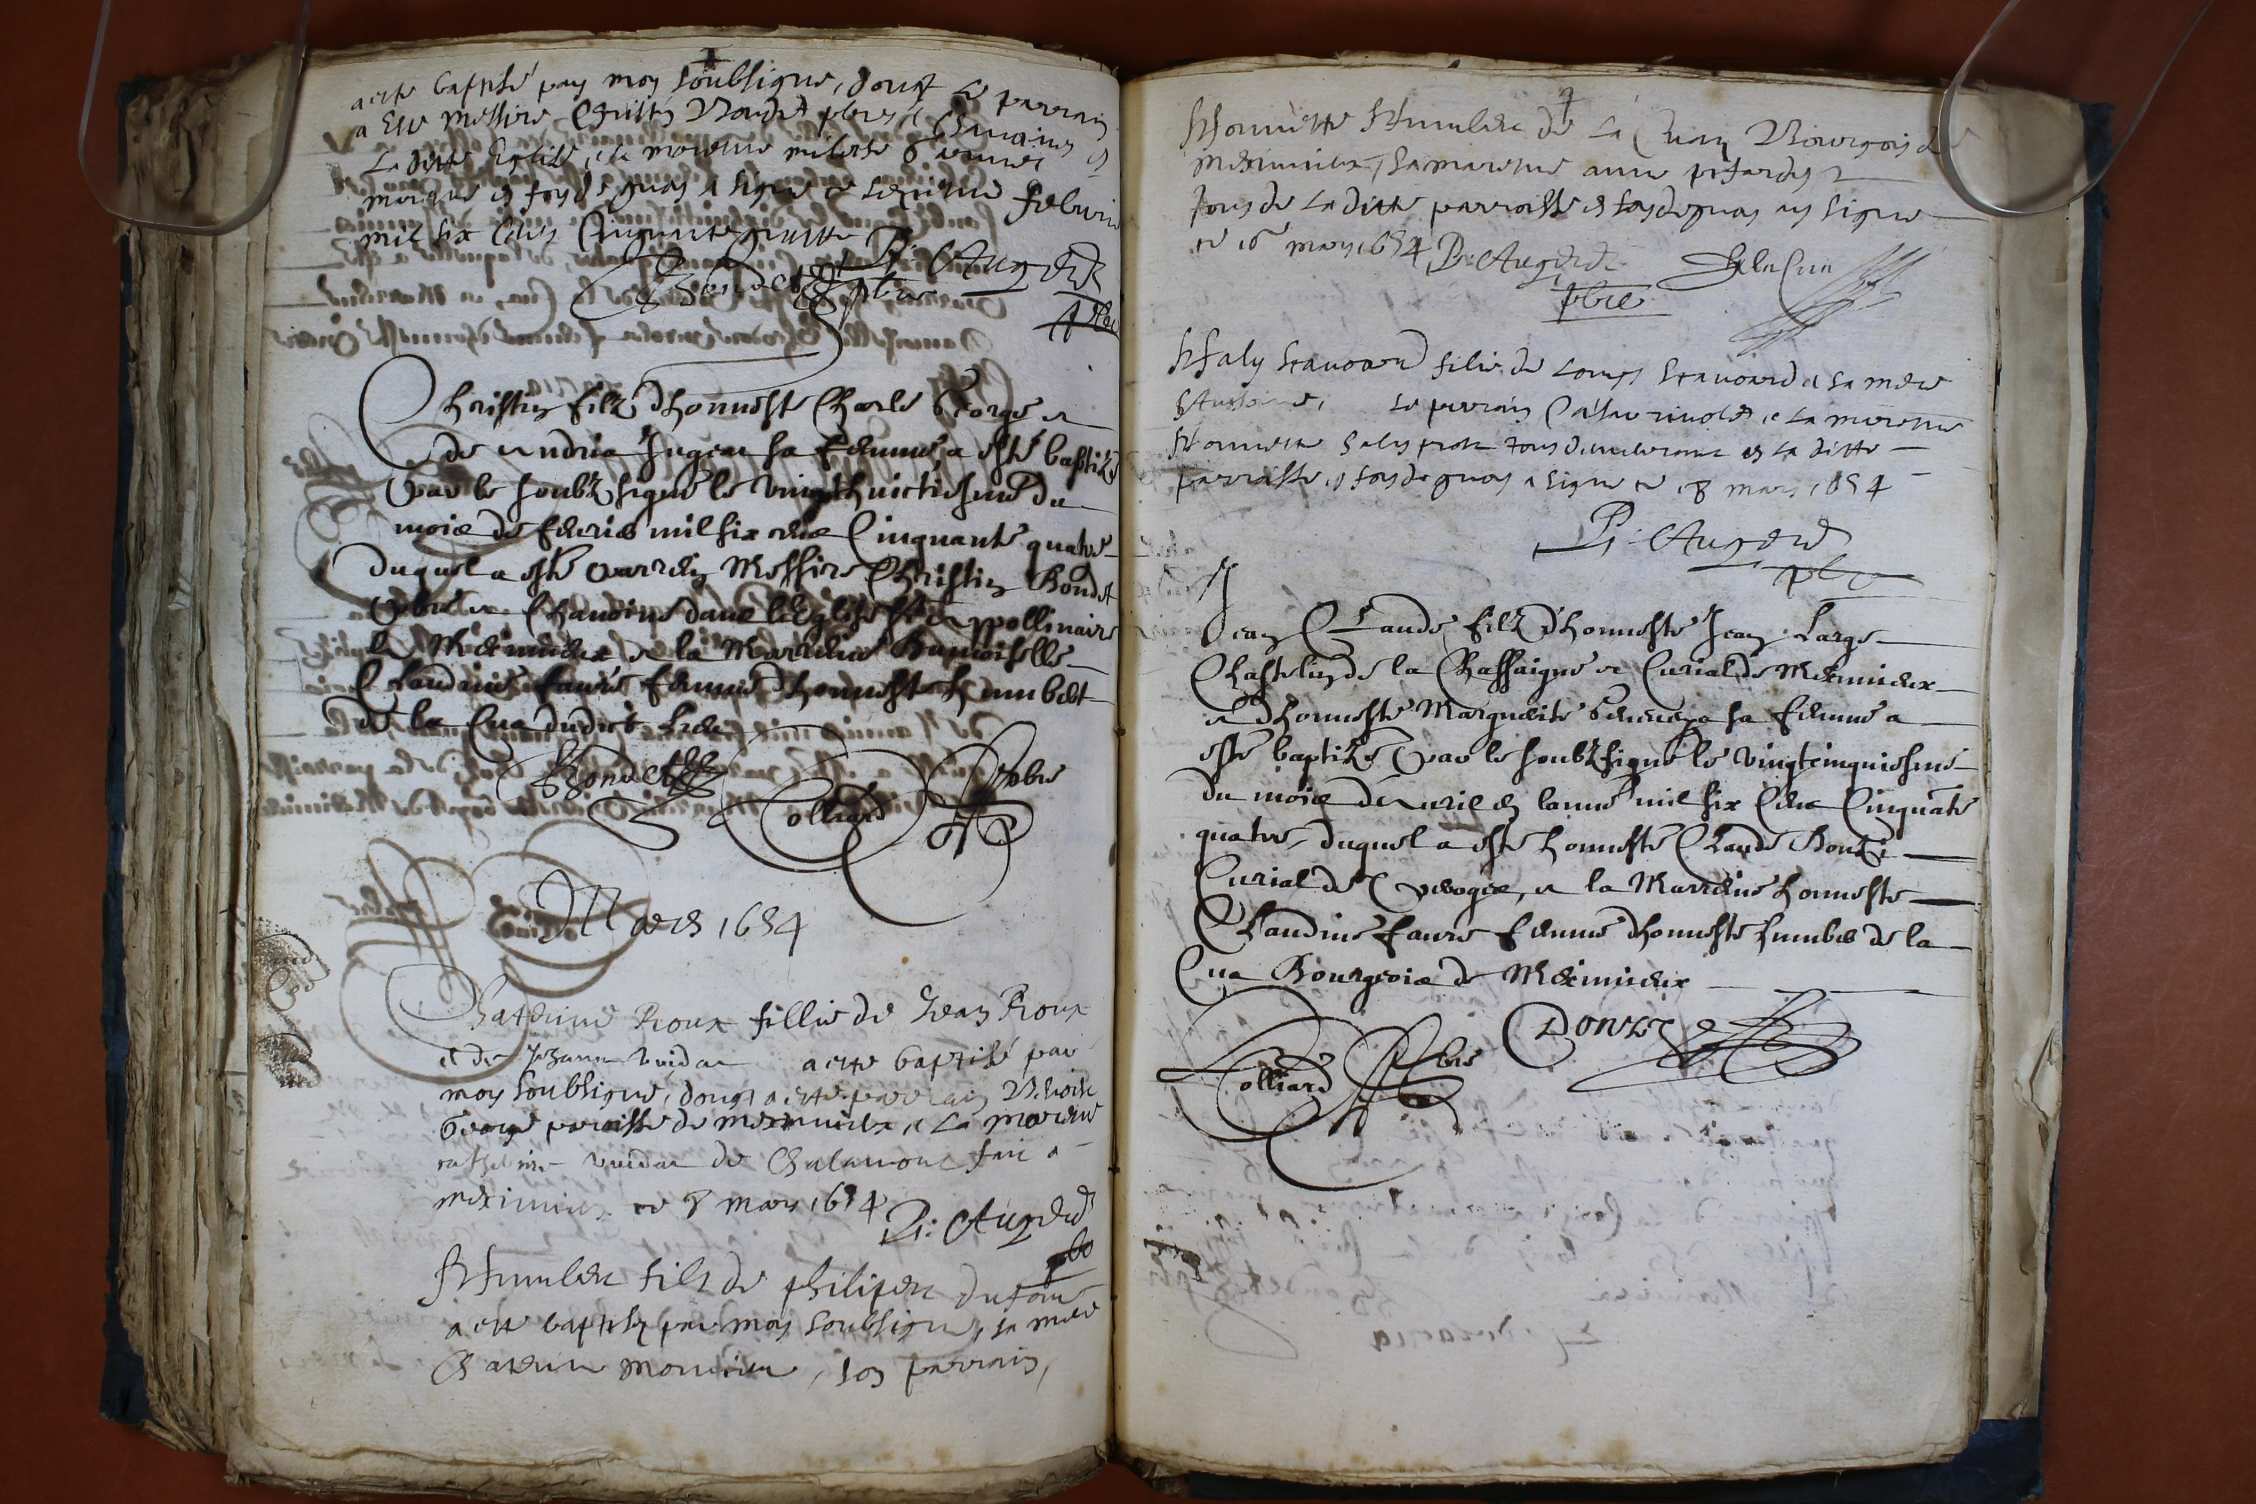 a este baptisé par moy soubsigne, dougt le parrain
a este messire Cristin Bondet pbre et chanoine en
la ditte Eglise, et la mareine
marque en foy de quoy a signe ce febvrie
mil six cens cinquante quattre
Bondet pbre P. Augerd
pbre
Christin filz d'honneste Charle George et
de Andrea Jugeat sa femme, a esté baptizé
par le soubzsigné le vingthuictiesme du
mois de febvrier mil six cens Cinquante quatre
duquel a esté parrein Messire Christin Bondet
pbre et Chanoine dans l'Eglise St Appollinaire
de Meximieux et la Marreine Damoiselle
Claudine faure femme d'honneste humbert
de la Cua dudict lieu
Bondet Colliard pbre
Mars 1654
Chaterine Roux fillie de Jean Roux
et de Jehanne vuidat a este baptisé par
moy soubsigné, dougt a este parrain Benoict
George paroisse de meximieux, et la mareine
catherine vuidat de Chalamont faict a
meximieux ce 8 mars 1654
P. Augerd
pbre
Humbert filz de philipert dufour
a este baptisé par moy soubsigné, sa mere
Chaterine monnier, son parrain,
Honneste Humbert de la Cua Bourgois de
meximieux, sa mareine anne
tous de la ditte parroisse en foy de quoy ay signe
ce 16 mars 1654 P. Augerd Delacua
pbre
fillie de Louys et sa mere
Anthoine, le parrain Cesar et la mareine
Honneste tous demeurant en la ditte
parroisse, en foy de quoy a signe ce 18 mars 1654
P. Augerd
pbre
Jean Claude filz d'honneste Jean Large
Chastelin de la Chassaigne et Curial de Meximieux
et d'honneste Marguerite sa femme a
esté baptizé par le soubzsigné le vingtcinquiesme
du mois de Avril en l'année mil six Cens Cinquante
quatre, duquel a esté honneste Claude Donzé
Curial de Peroges, et la Marreine honneste
Claudine faure femme d'honneste humbert de la
Cua Bourgeois de Meximieux
Colliard pbre Donze